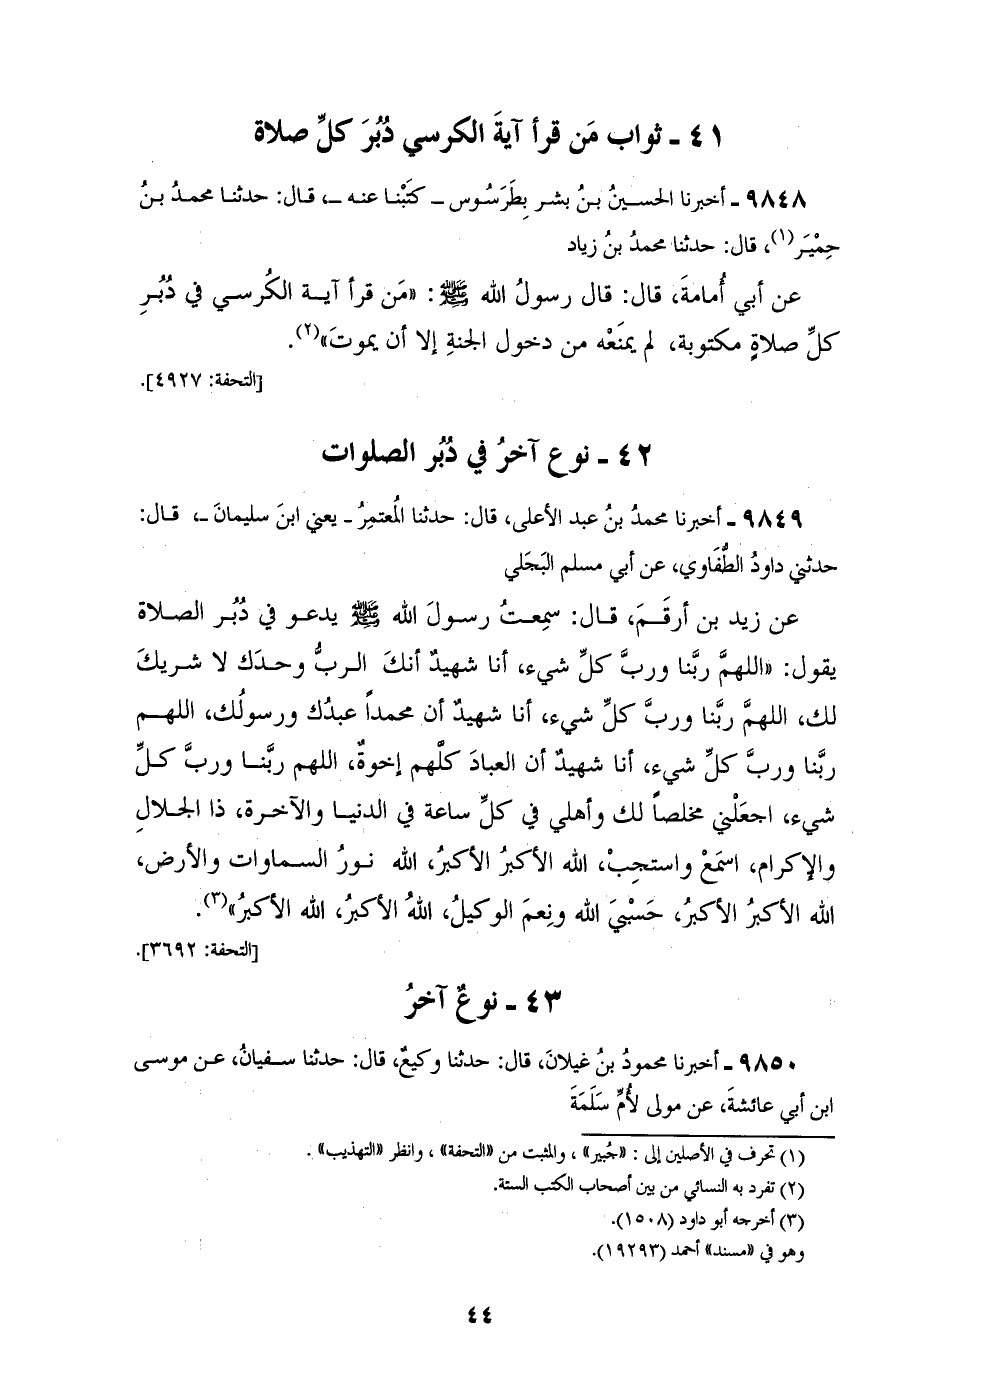 ٤١ ـ ثواب مَن قرأ آيةَ الكرسي دُبُرَ كلِّ صلاة
٩٨٤٨ ـ أخبرنا الحسينُ بنُ بشر بِطَرَسُوس – كتَبْنا عنه –، قال: حدثنا محمدُ بنُ
حِمْيَر(١)، قال: حدثنا محمدُ بنُ زياد
عن أبي أُمامةَ، قال: قال رسولُ الله ﷺ: «مَن قرأ آية الكُرسي في دُبُرِ
كلِّ صلاةٍ مكتوبة، لم يمنَعْه من دخول الجنةِ إلا أن يموتَ»(٢).
[التحفة: ٤٩٢٧].
٤٢ ـ نوع آخرُ في دُبُر الصلوات
٩٨٤٩ ـ أخبرنا محمدُ بنُ عبد الأعلى، قال: حدثنا المُعتمِرُ ـ يعني ابنَ سليمانَ ـ، قال:
حدثني داودُ الطُّفَاوي، عن أبي مسلم البَجَلي
عن زيد بن أرقَمَ، قال: سمِعتُ رسولَ الله ﷺ يدعو في دُبُر الصلاة
يقول: «اللهمَّ ربَّنا وربَّ كلِّ شيء، أنا شهيدٌ أنكَ الربُّ وحدَك لا شريكَ
لك، اللهمَّ ربَّنا وربَّ كلِّ شيء، أنا شهيدٌ أن محمداً عبدُك ورسولُك، اللهم
ربَّنا وربَّ كلِّ شيء، أنا شهيدٌ أن العبادَ كلَّهم إخوةٌ، اللهم ربَّنا وربَّ كلِّ
شيء، اجعَلْني مخلصاً لك وأهلي في كلِّ ساعة في الدنيا والآخرة، ذا الجلالِ
والإكرام، اسمَعْ واستجِبْ، الله الأكبرُ الأكبرُ، الله نورُ السماوات والأرض،
الله الأكبرُ الأكبرُ، حَسْبيَ الله ونِعمَ الوكيلُ، اللهُ الأكبرُ، الله الأكبرُ»(٣).
[التحفة: ٣٦٩٢].
٤٣ ـ نوعٌ آخرُ
٩٨٥٠ ـ أخبرنا محمودُ بنُ غيلانَ، قال: حدثنا وكيعٌ، قال: حدثنا سفيانُ، عن موسى
ابن أبي عائشةَ، عن مولى لأُمِّ سَلَمَةَ
(١) تحرف في الأصلين إلى: «جُبير»، والمثبت من «التحفة»، وانظر «التهذيب».
(٢) تفرد به النسائي من بين أصحاب الكتب الستة.
(٣) أخرجه أبو داود (١٥٠٨).
وهو في «مسند» أحمد (١٩٢٩٣).
٤٤